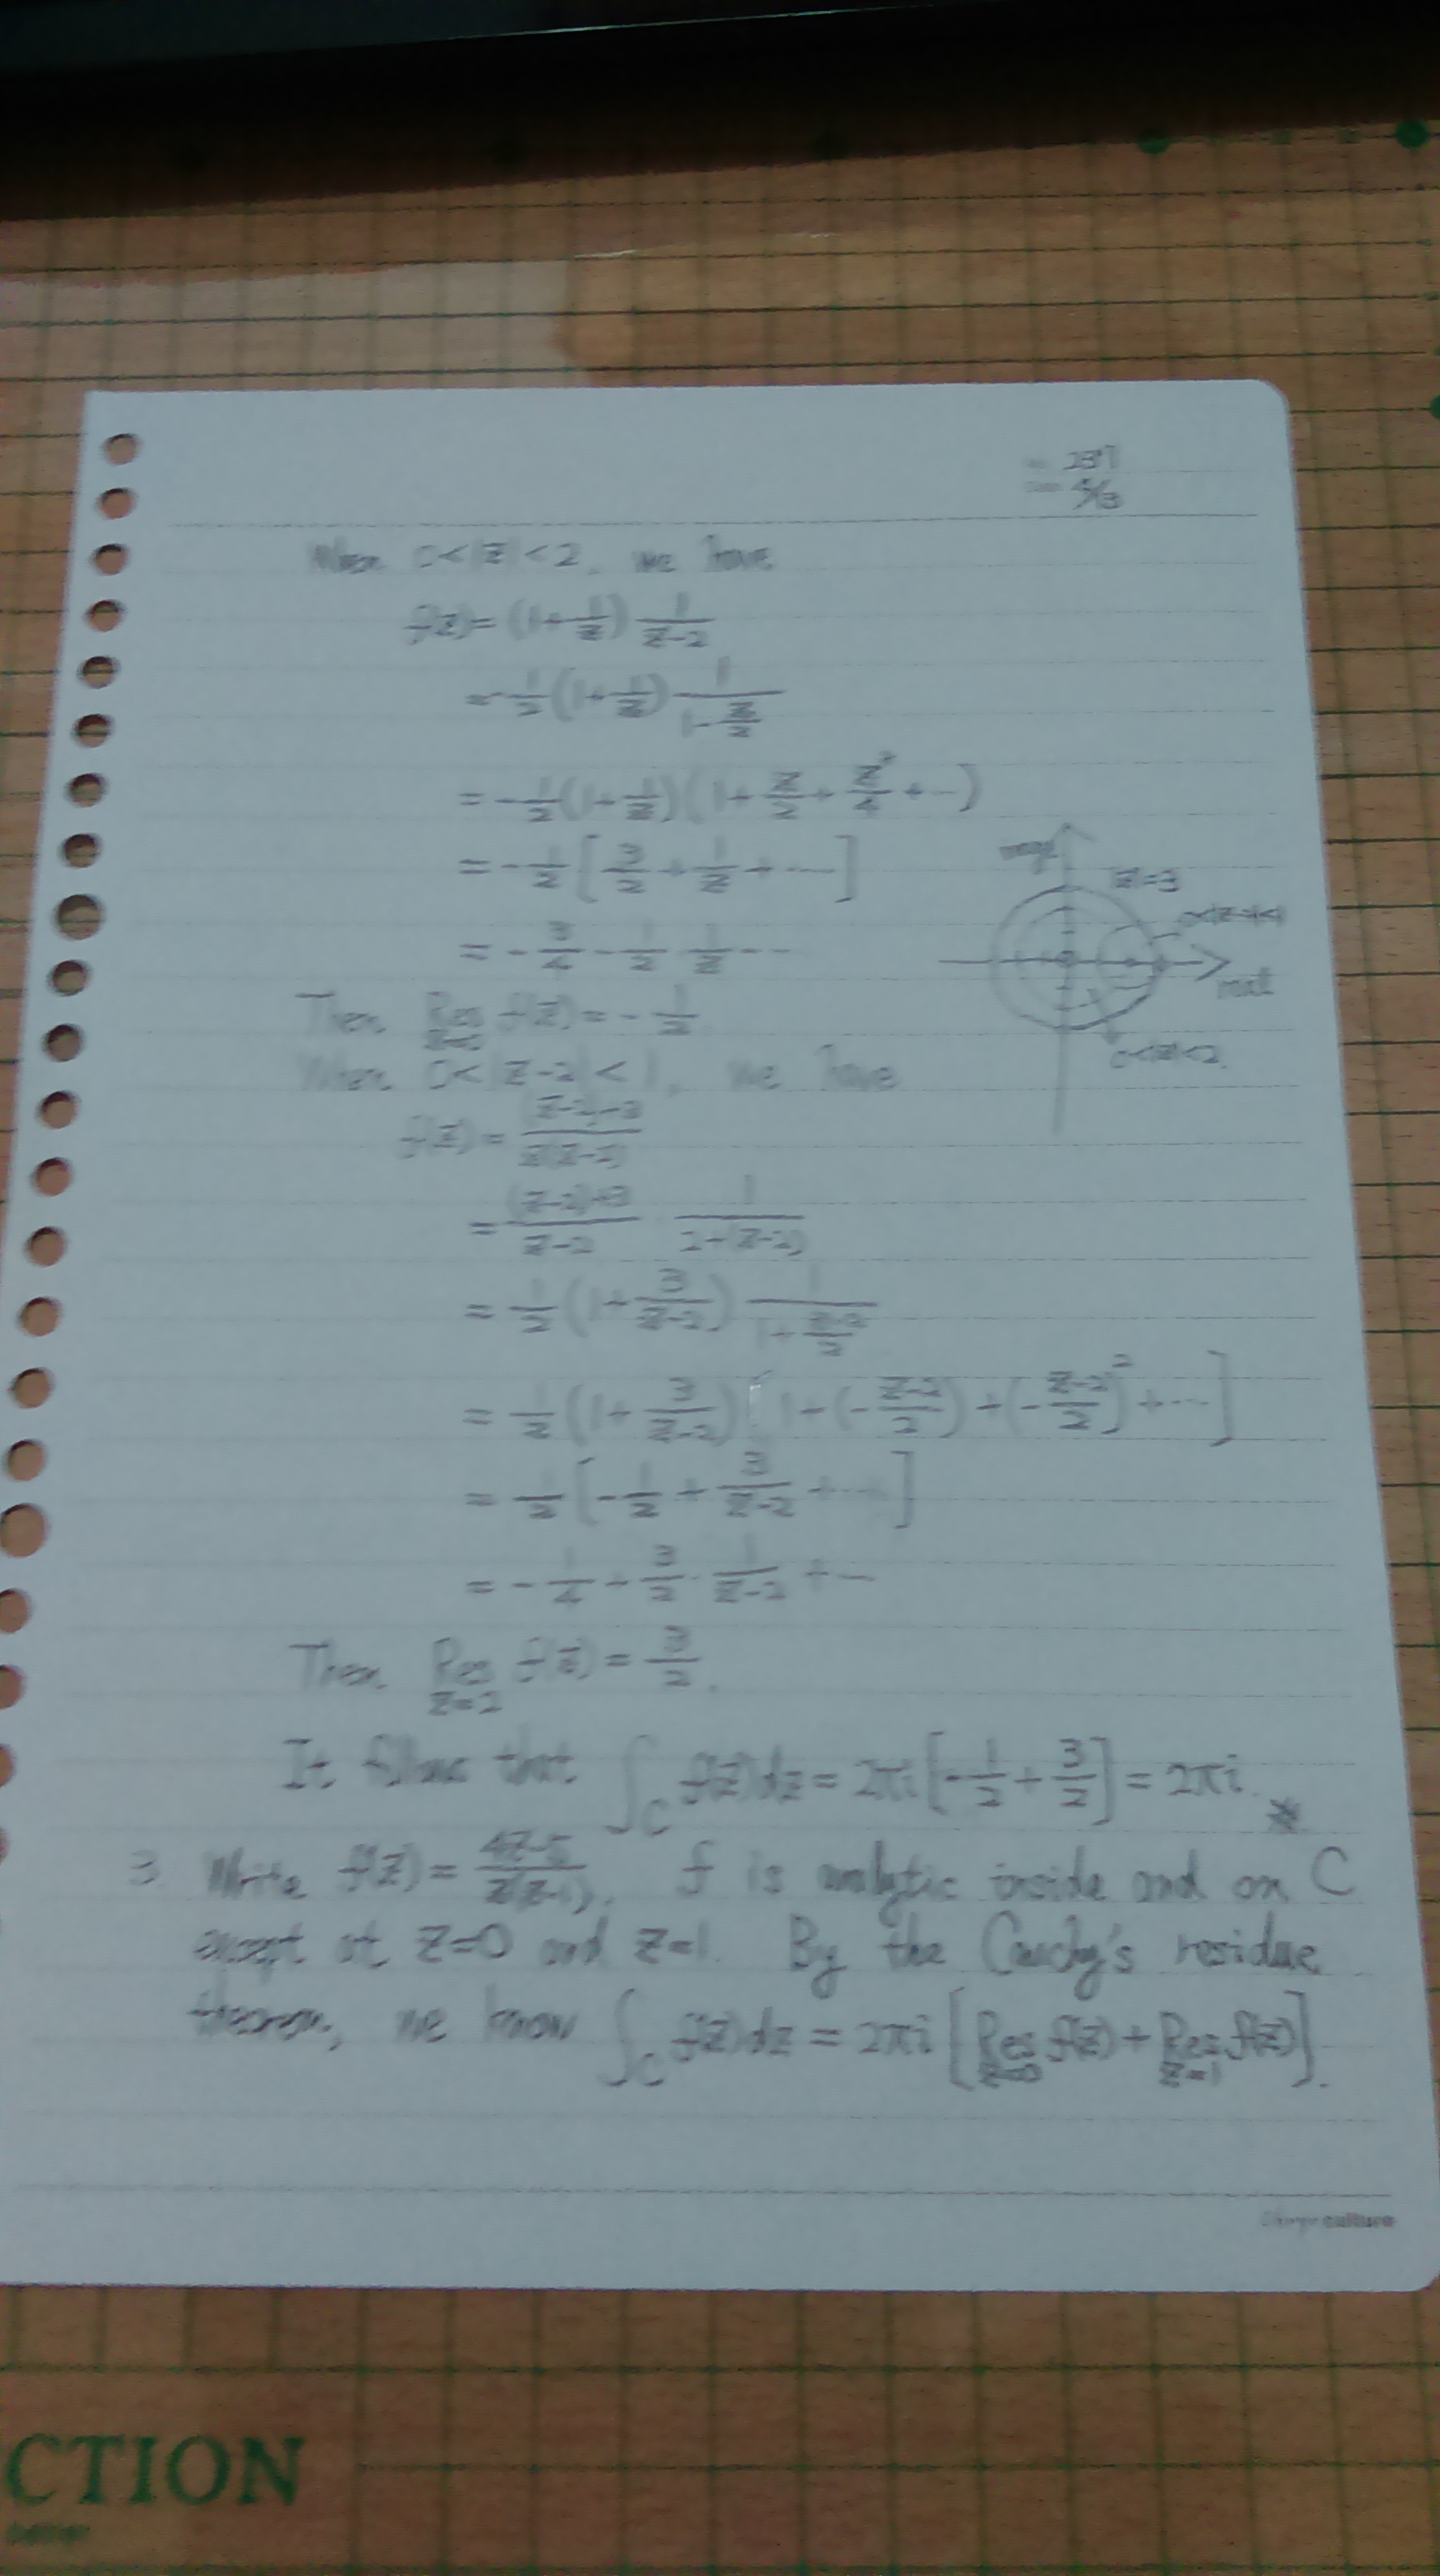 237
4/3
When 0<|z|<2, we have
f(z)=(1+1/z) 1/(z-2)
=-1/2(1+1/z) 1/(1-z/2)
=-1/2(1+1/z)(1+z/2+z²/4+...)
=-1/2[3/2+1/z+...]
=-3/4-1/2·1/z...
Then Res f(z)=-1/2
|z|=3
real
0<|z|<2
When 0<|z-2|<1, we have
f(z)=((z-2)+3)/(z(z-2))
=((z-2)+3)/(z-2) · 1/(2+(z-2))
=1/2(1+3/(z-2)) 1/(1+(z-2)/2)
=1/2(1+3/(z-2))[1+(-(z-2)/2)+(-(z-2)/2)²+...]
=1/2[-1/2+3/(z-2)+...]
=-1/4+3/2·1/(z-2)+...
Then Res z=2 f(z)=3/2.
It follows that ∫_C f(z)dz=2πi[-1/2+3/2]=2πi.
3 Write f(z)=(4z-5)/(z(z-1)). f is analytic inside and on C
except at z=0 and z=1. By the Cauchy's residue
theorem, we know ∫_C f(z)dz=2πi[Res z=0 f(z)+Res z=1 f(z)].
culture
CTION